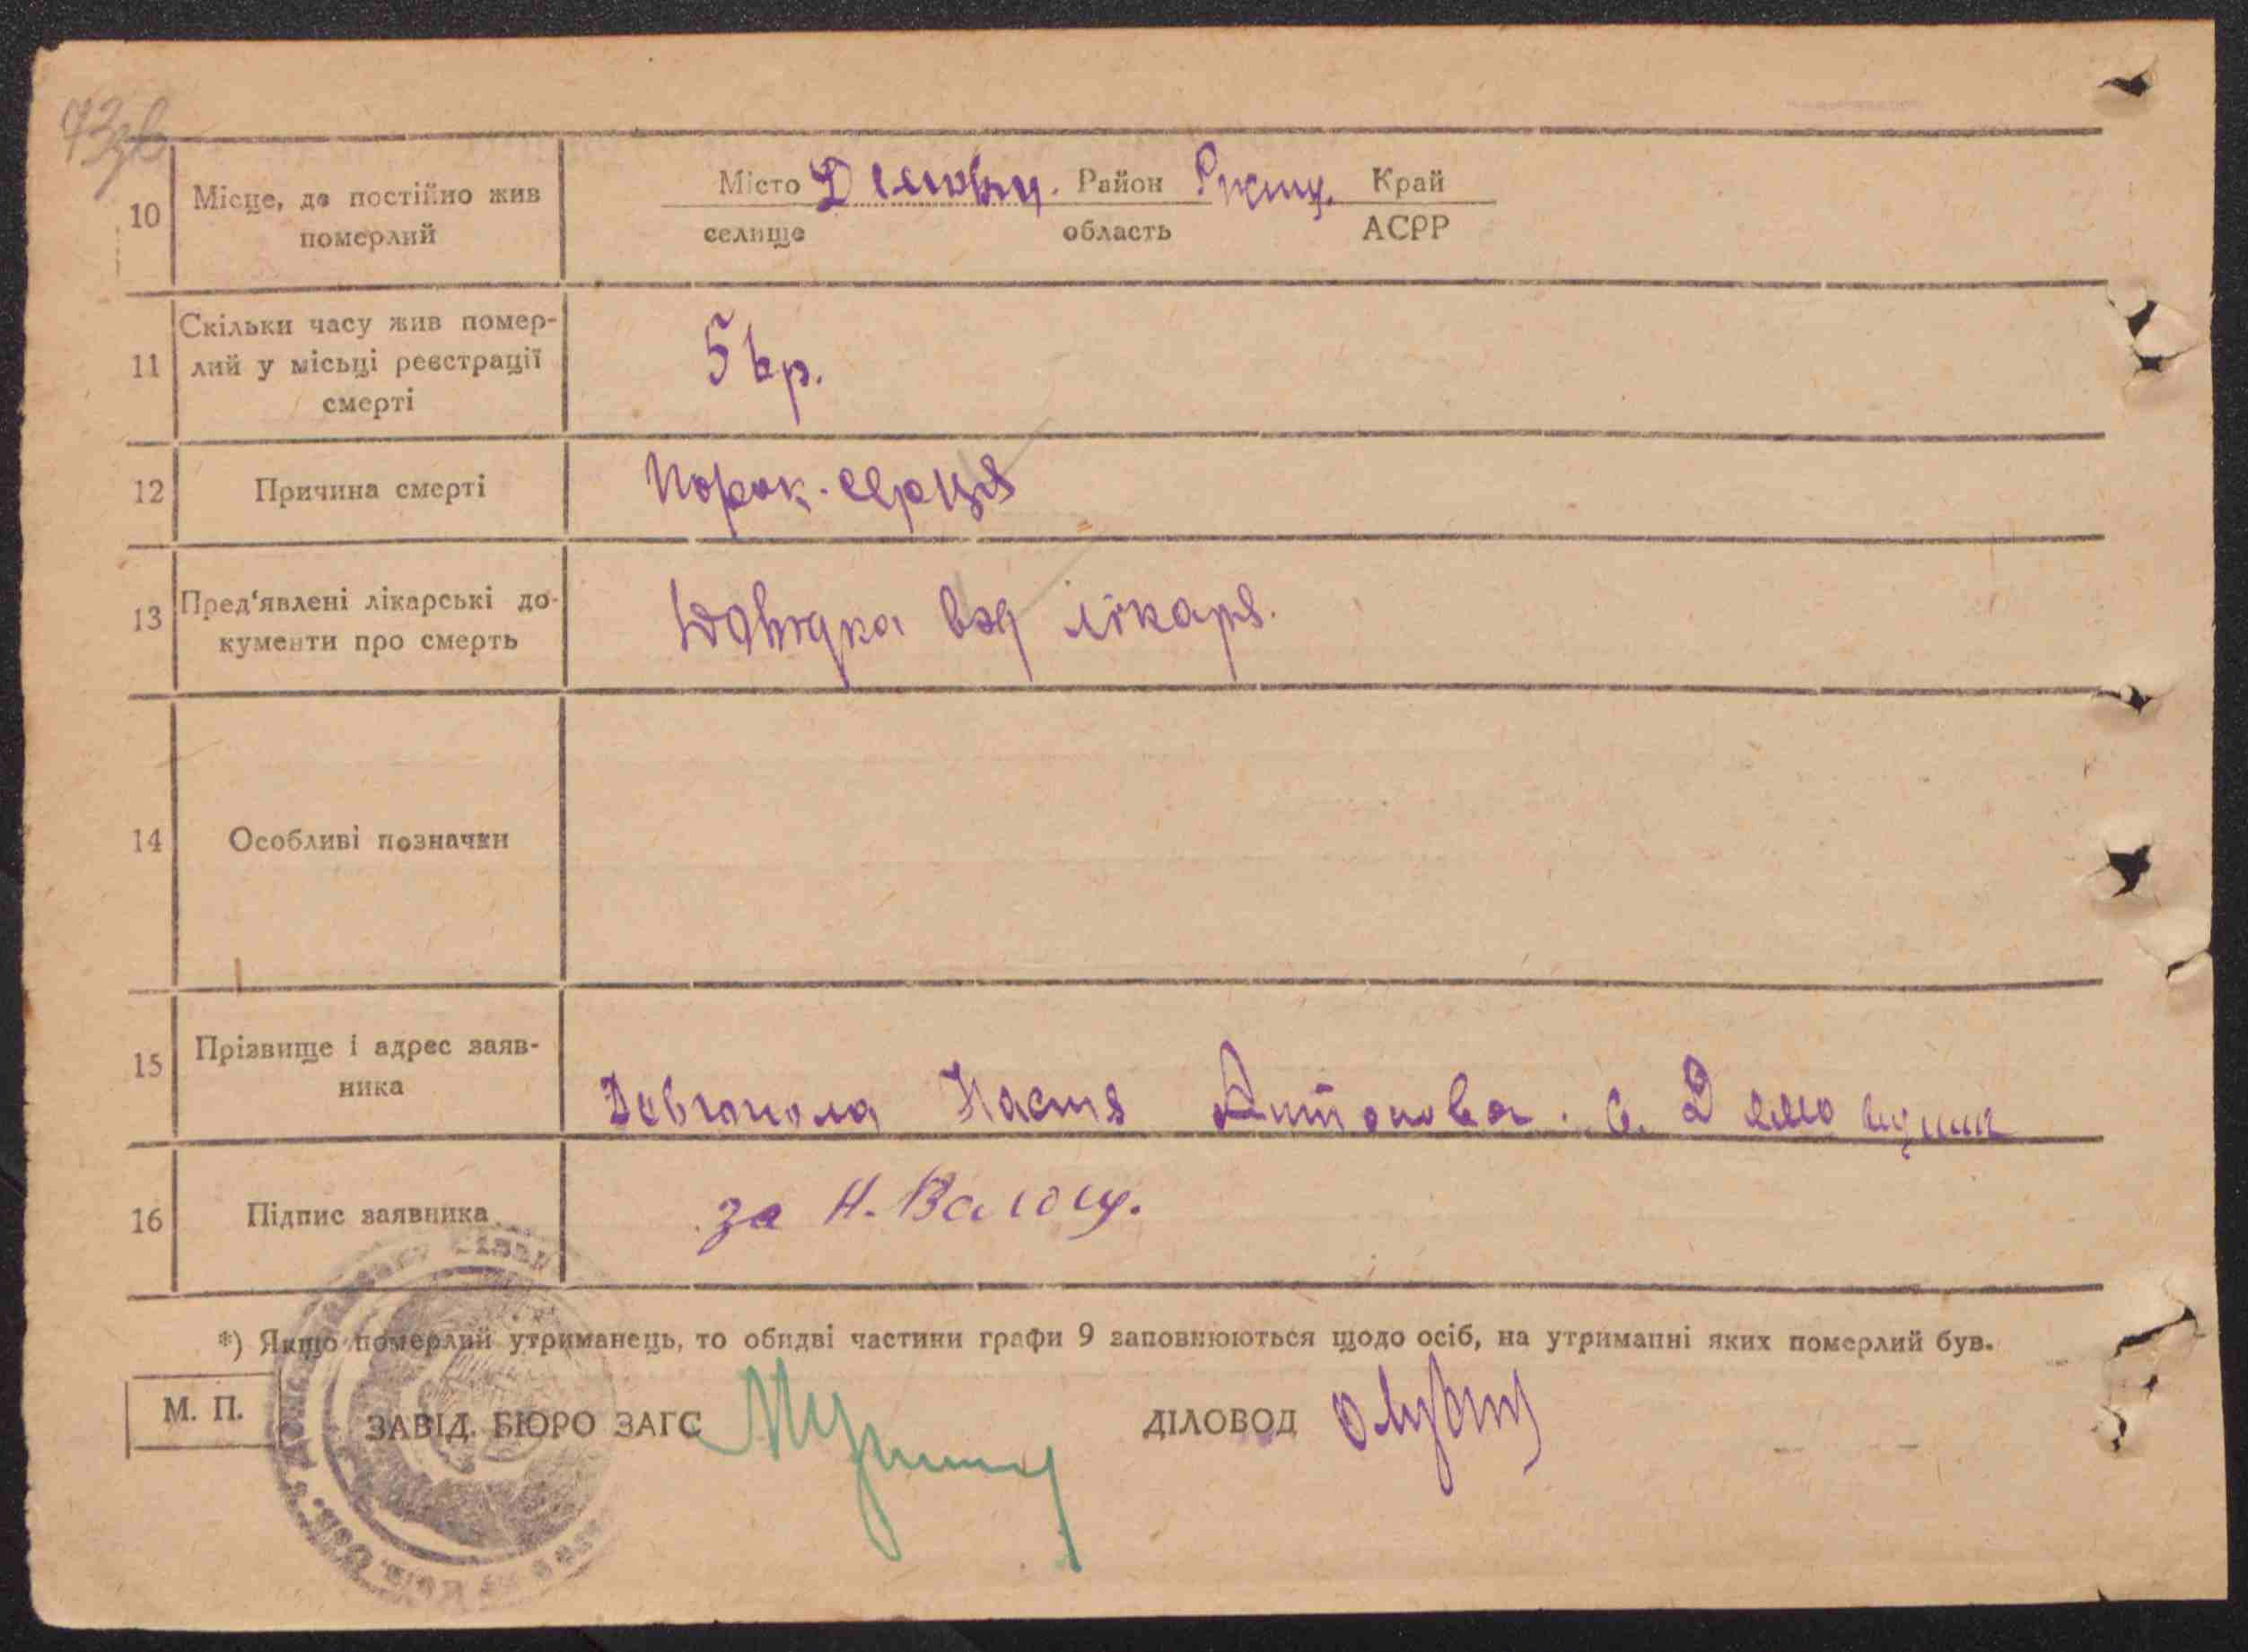 10 Місце, де постійно жив
померлий
Місто Район Край
селище область АСРР
11 Скільки часу жив помер-
лий у місьці реєстрації
смерті
5 бр.
12 Причина смерті
Порок. серця
13 Пред'явлені лікарські до-
кументи про смерть
Довідка від лікаря.
14 Особливі позначки
15 Прізвище і адрес заяв-
ника
Настя Антонова. с.
16 Підпис заявника
за Н.
*) Якщо померлий утриманець, то обидві частини графи 9 заповнюються щодо осіб, на утриманні яких померлий був.
М. П.
ЗАВІД. БЮРО ЗАГС ДІЛОВОД